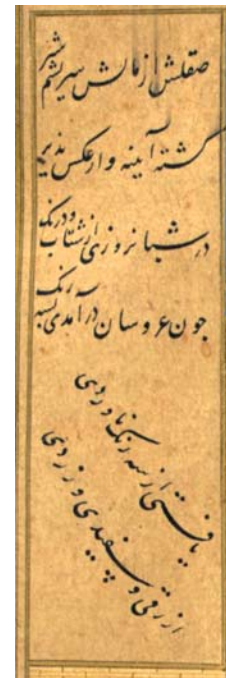 صقلش از مالش سریشم شیر
گشته آینه وار عکس پذیر
در شبانروزی از شتاب و درنگ
چون عروسان در آمدی بسه رنگ
یافتی از سه رنگ ناوردی
ازرقی و سپیدی و زردی